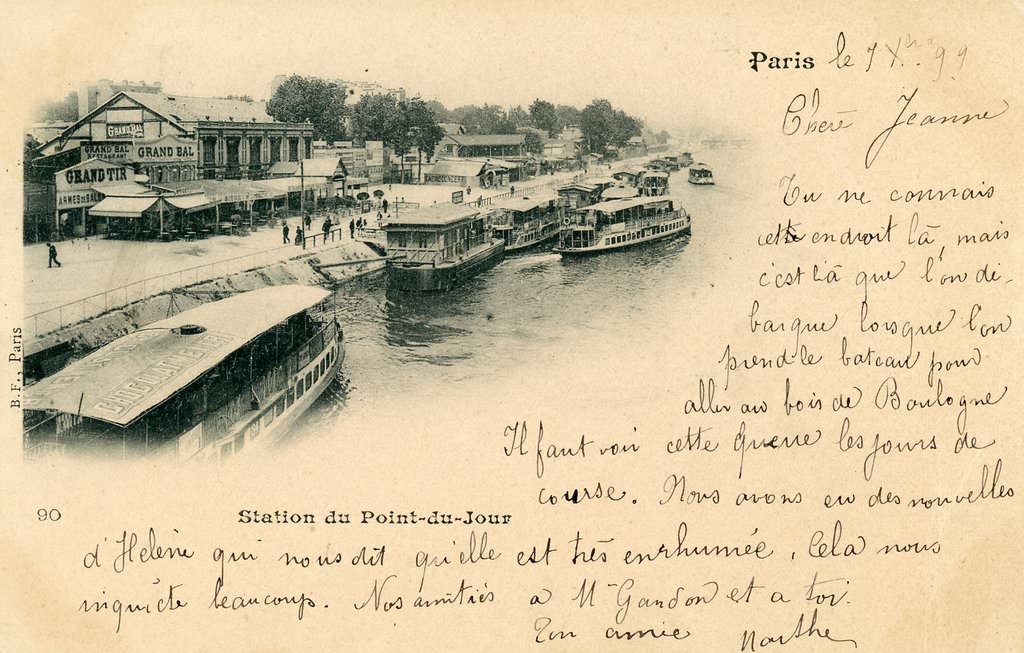 Paris le 7 Xbre 99
Chère Jeanne
Tu ne connais
cette endroit là, mais
c'est là que l'on dé-
barque lorsque l'on
prend le bateau pour
aller au bois de Boulogne
Il faut voir cette queue les jours de
course. Nous avons eu des nouvelles
d'Helène qui nous dit qu'elle est très enrhumée, Cela nous
inquiète beaucoup. Nos amitiés a Mr Gandon et a toi.
Ton amie Marthe
GRAND BAL
GRAND BAL
RESTAURANT
GRAND BAL
GRAND TIR
ARMES DE SALON
CHOCOLAT
B. F., Paris
90
Station du Point-du-Jour